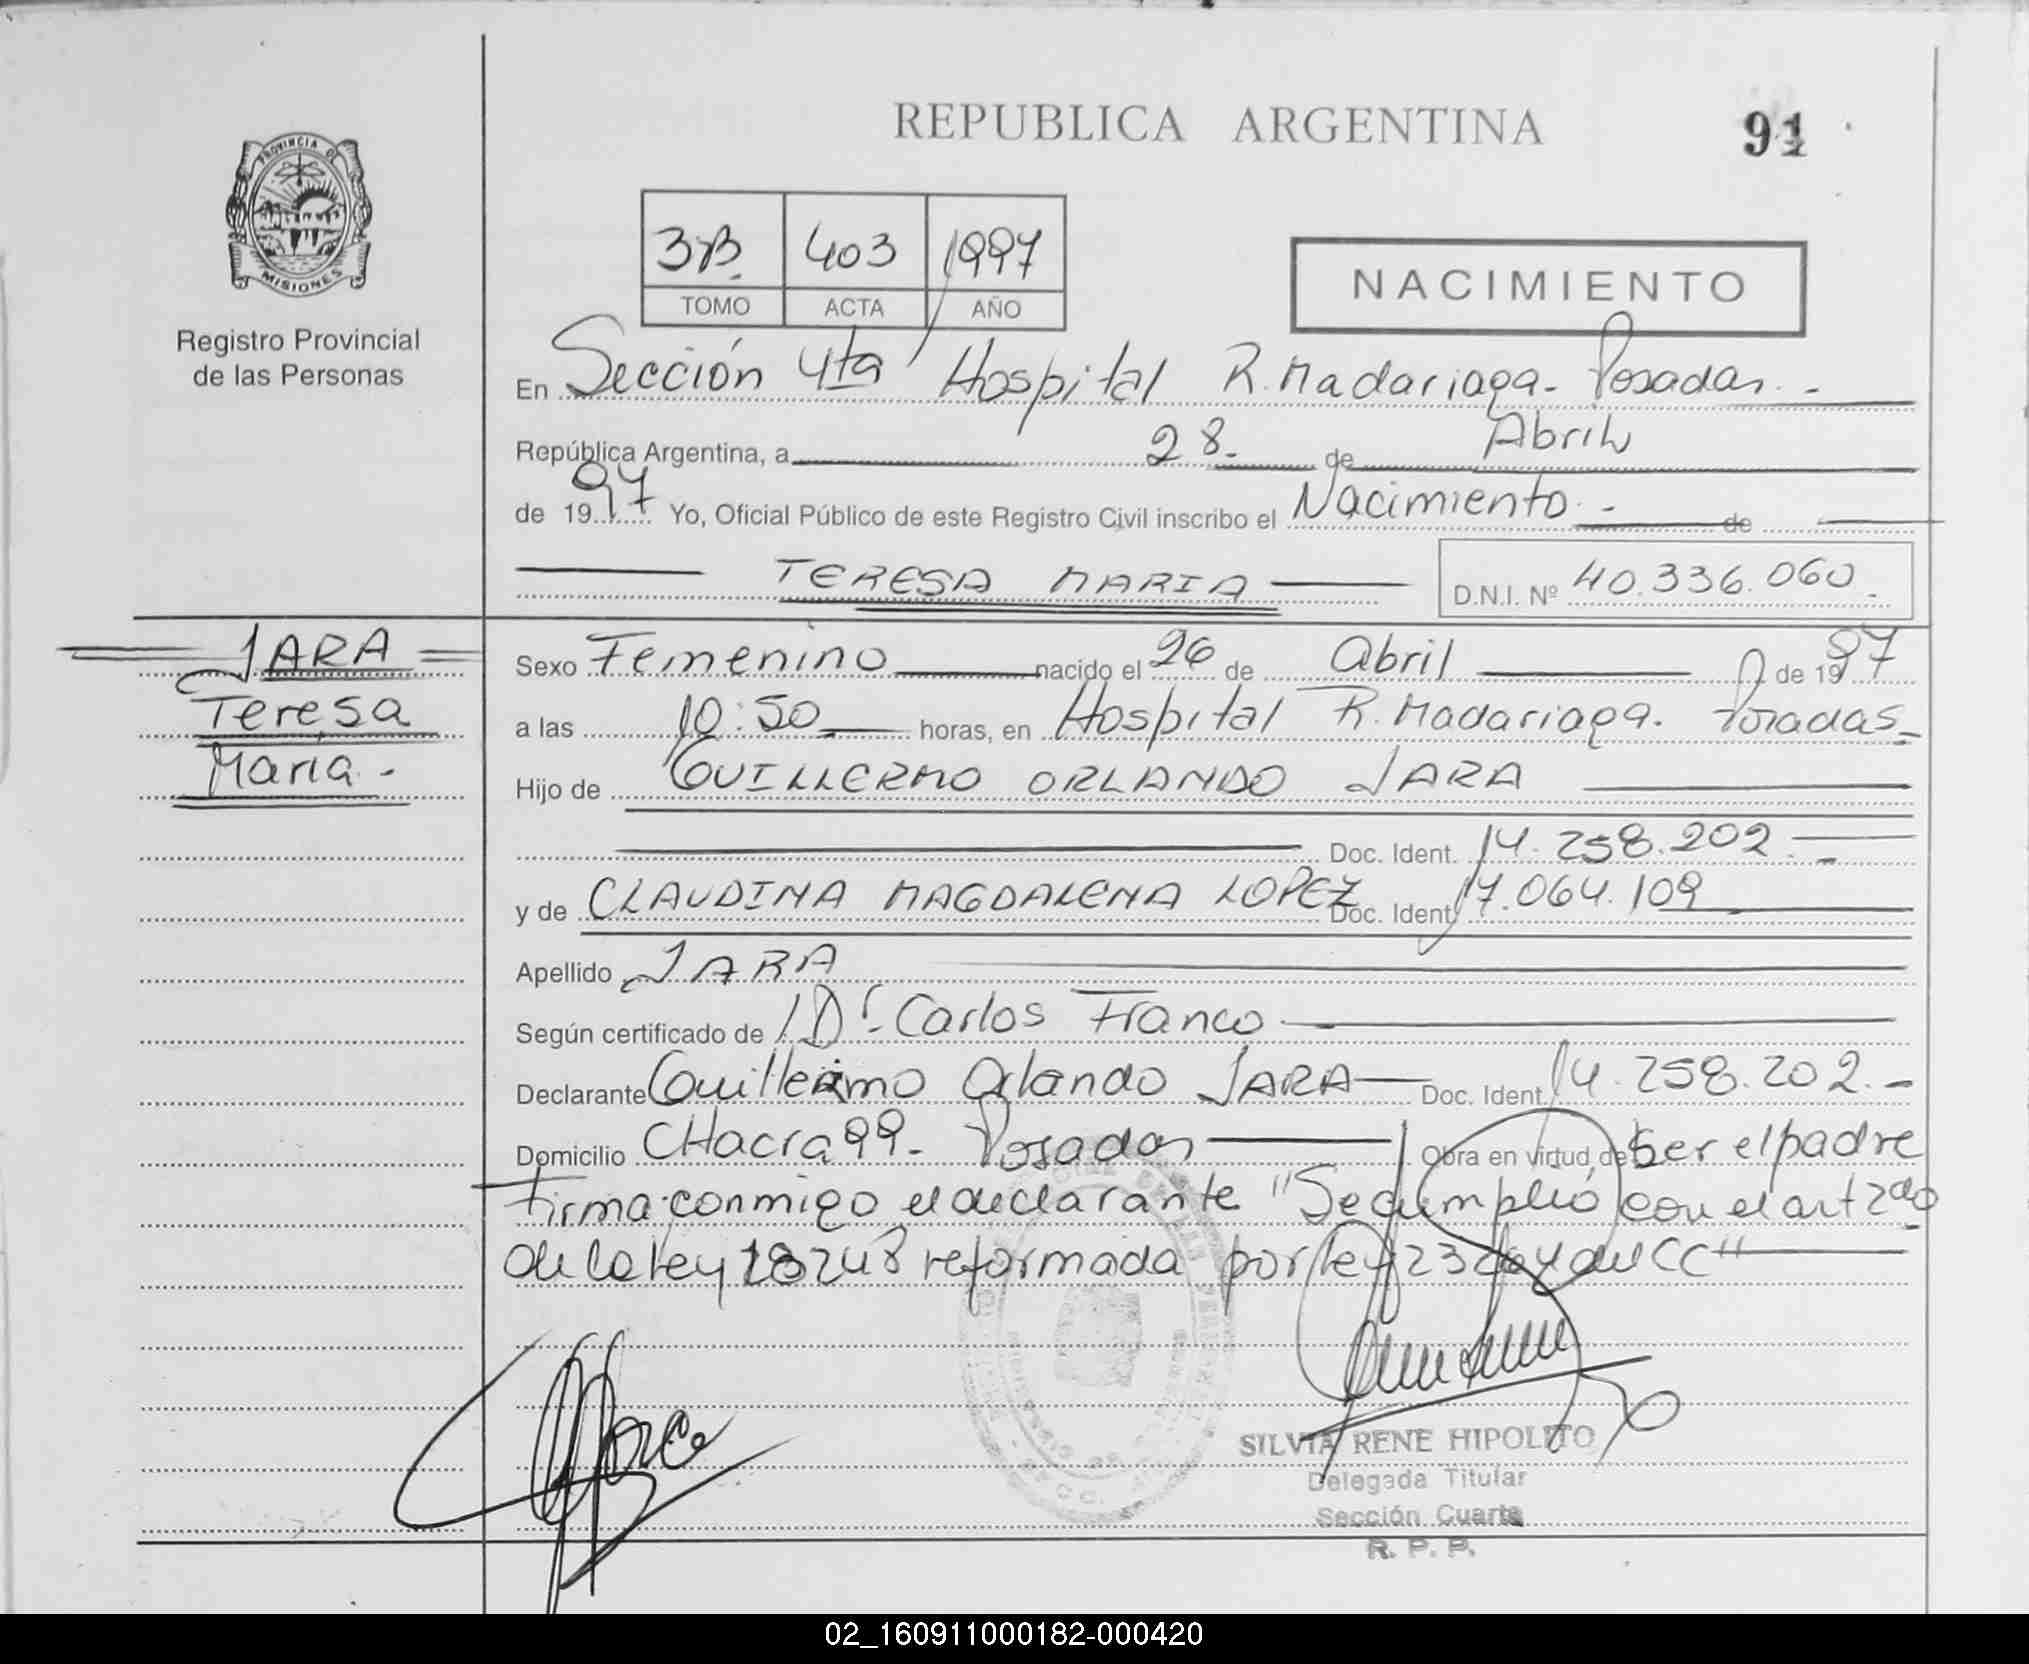 REPUBLICA ARGENTINA
PROVINCIA DE
MISIONES
Registro Provincial
de las Personas
3B. 403 1997
TOMO ACTA AÑO
NACIMIENTO
En Sección 4ta Hospital R. Madariaga - Posadas. -
República Argentina, a 28. de Abril
de 1997 Yo, Oficial Público de este Registro Civil inscribo el Nacimiento. - de
TERESA MARIA D.N.I. Nº 40.336.060.
JARA
Teresa
Maria. -
Sexo Femenino nacido el 26 de Abril de 1997
a las 10:50 horas, en Hospital R. Madariaga. Posadas.
Hijo de GUILLERMO ORLANDO JARA
Doc. Ident. 14.258.202. -
y de CLAUDINA MAGDALENA LOPEZ Doc. Ident. 17.064.109
Apellido JARA
Según certificado de Dr. Carlos Franco
Declarante Guillermo Orlando JARA Doc. Ident. 14.258.202. -
Domicilio CHacra 99. Posadas Obra en virtud de Ser el padre
firma conmigo el declarante "Se cumplió con el art 2do
de la ley 18248 reformada por ley 23264 del CC"
SILVIA RENE HIPOLITO
Delegada Titular
Sección Cuarta
R. P. P.
02_160911000182-000420